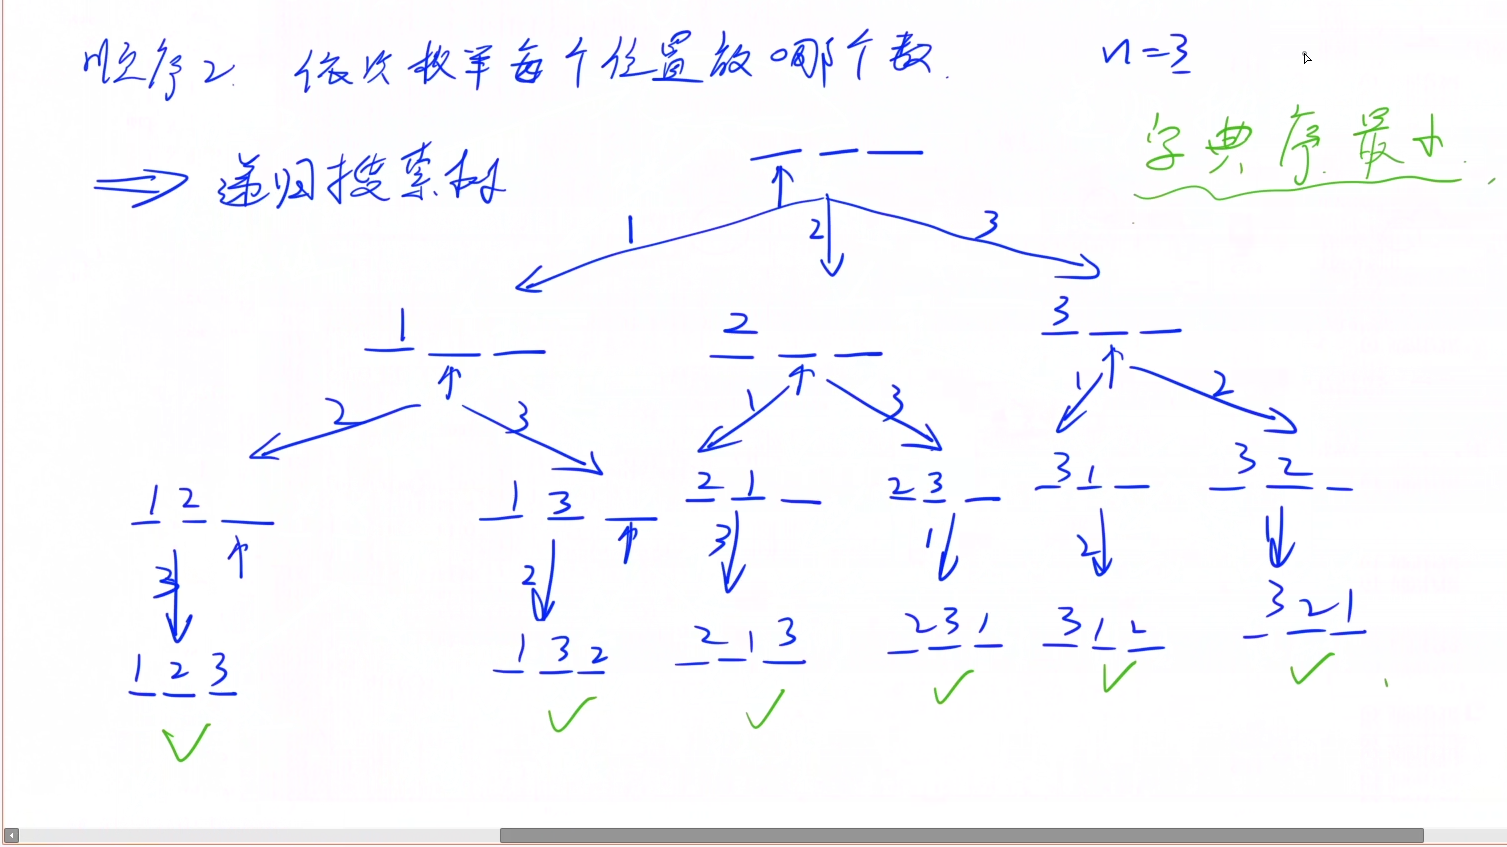 顺序2. 依次枚举每个位置放哪个数.
n=3
字典序最小.
⇒ 递归搜索树
1 2 3
1 _ _
2 _ _
3 _ _
2 3 1 3 1 2
1 2 _
1 3 _
2 1 _
2 3 _
3 1 _
3 2 _
3 2 3 1 2 1
1 2 3
1 3 2
2 1 3
2 3 1
3 1 2
3 2 1